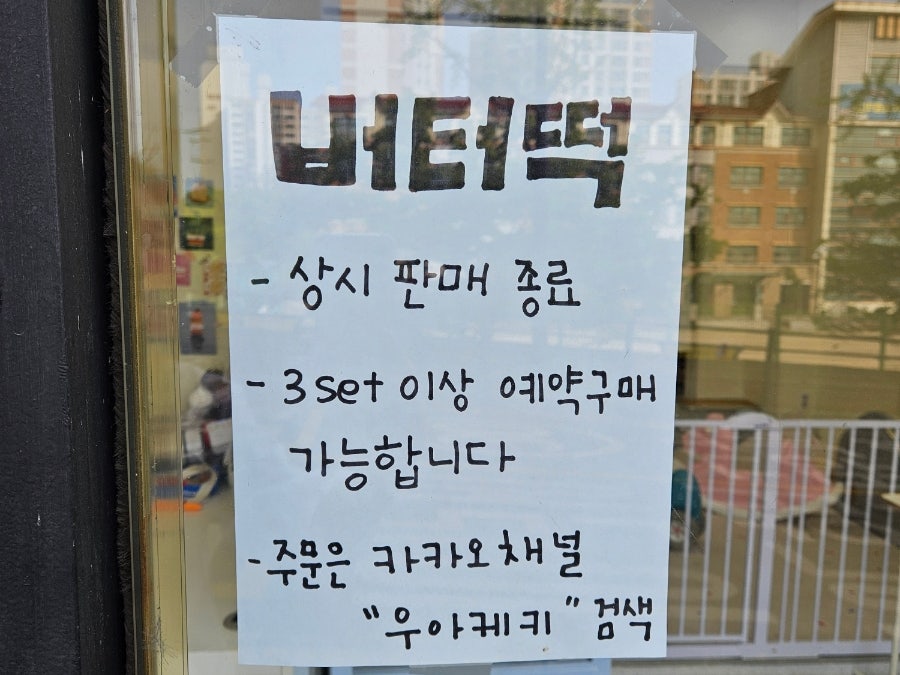 버터떡
- 상시 판매 종료
- 3set 이상 예약구매
가능합니다
- 주문은 카카오채널
"우아케키" 검색